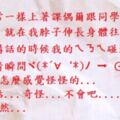 常一樣上著課偶爾跟同學
就在我脖子伸長身體往
講話的時候我的ㄟ乃ㄟ碰
瞬間ヾ(*´∀`*)ﾉ → ⊙
怎麼感覺怪怪的...
..奇怪...不會吧....
然...